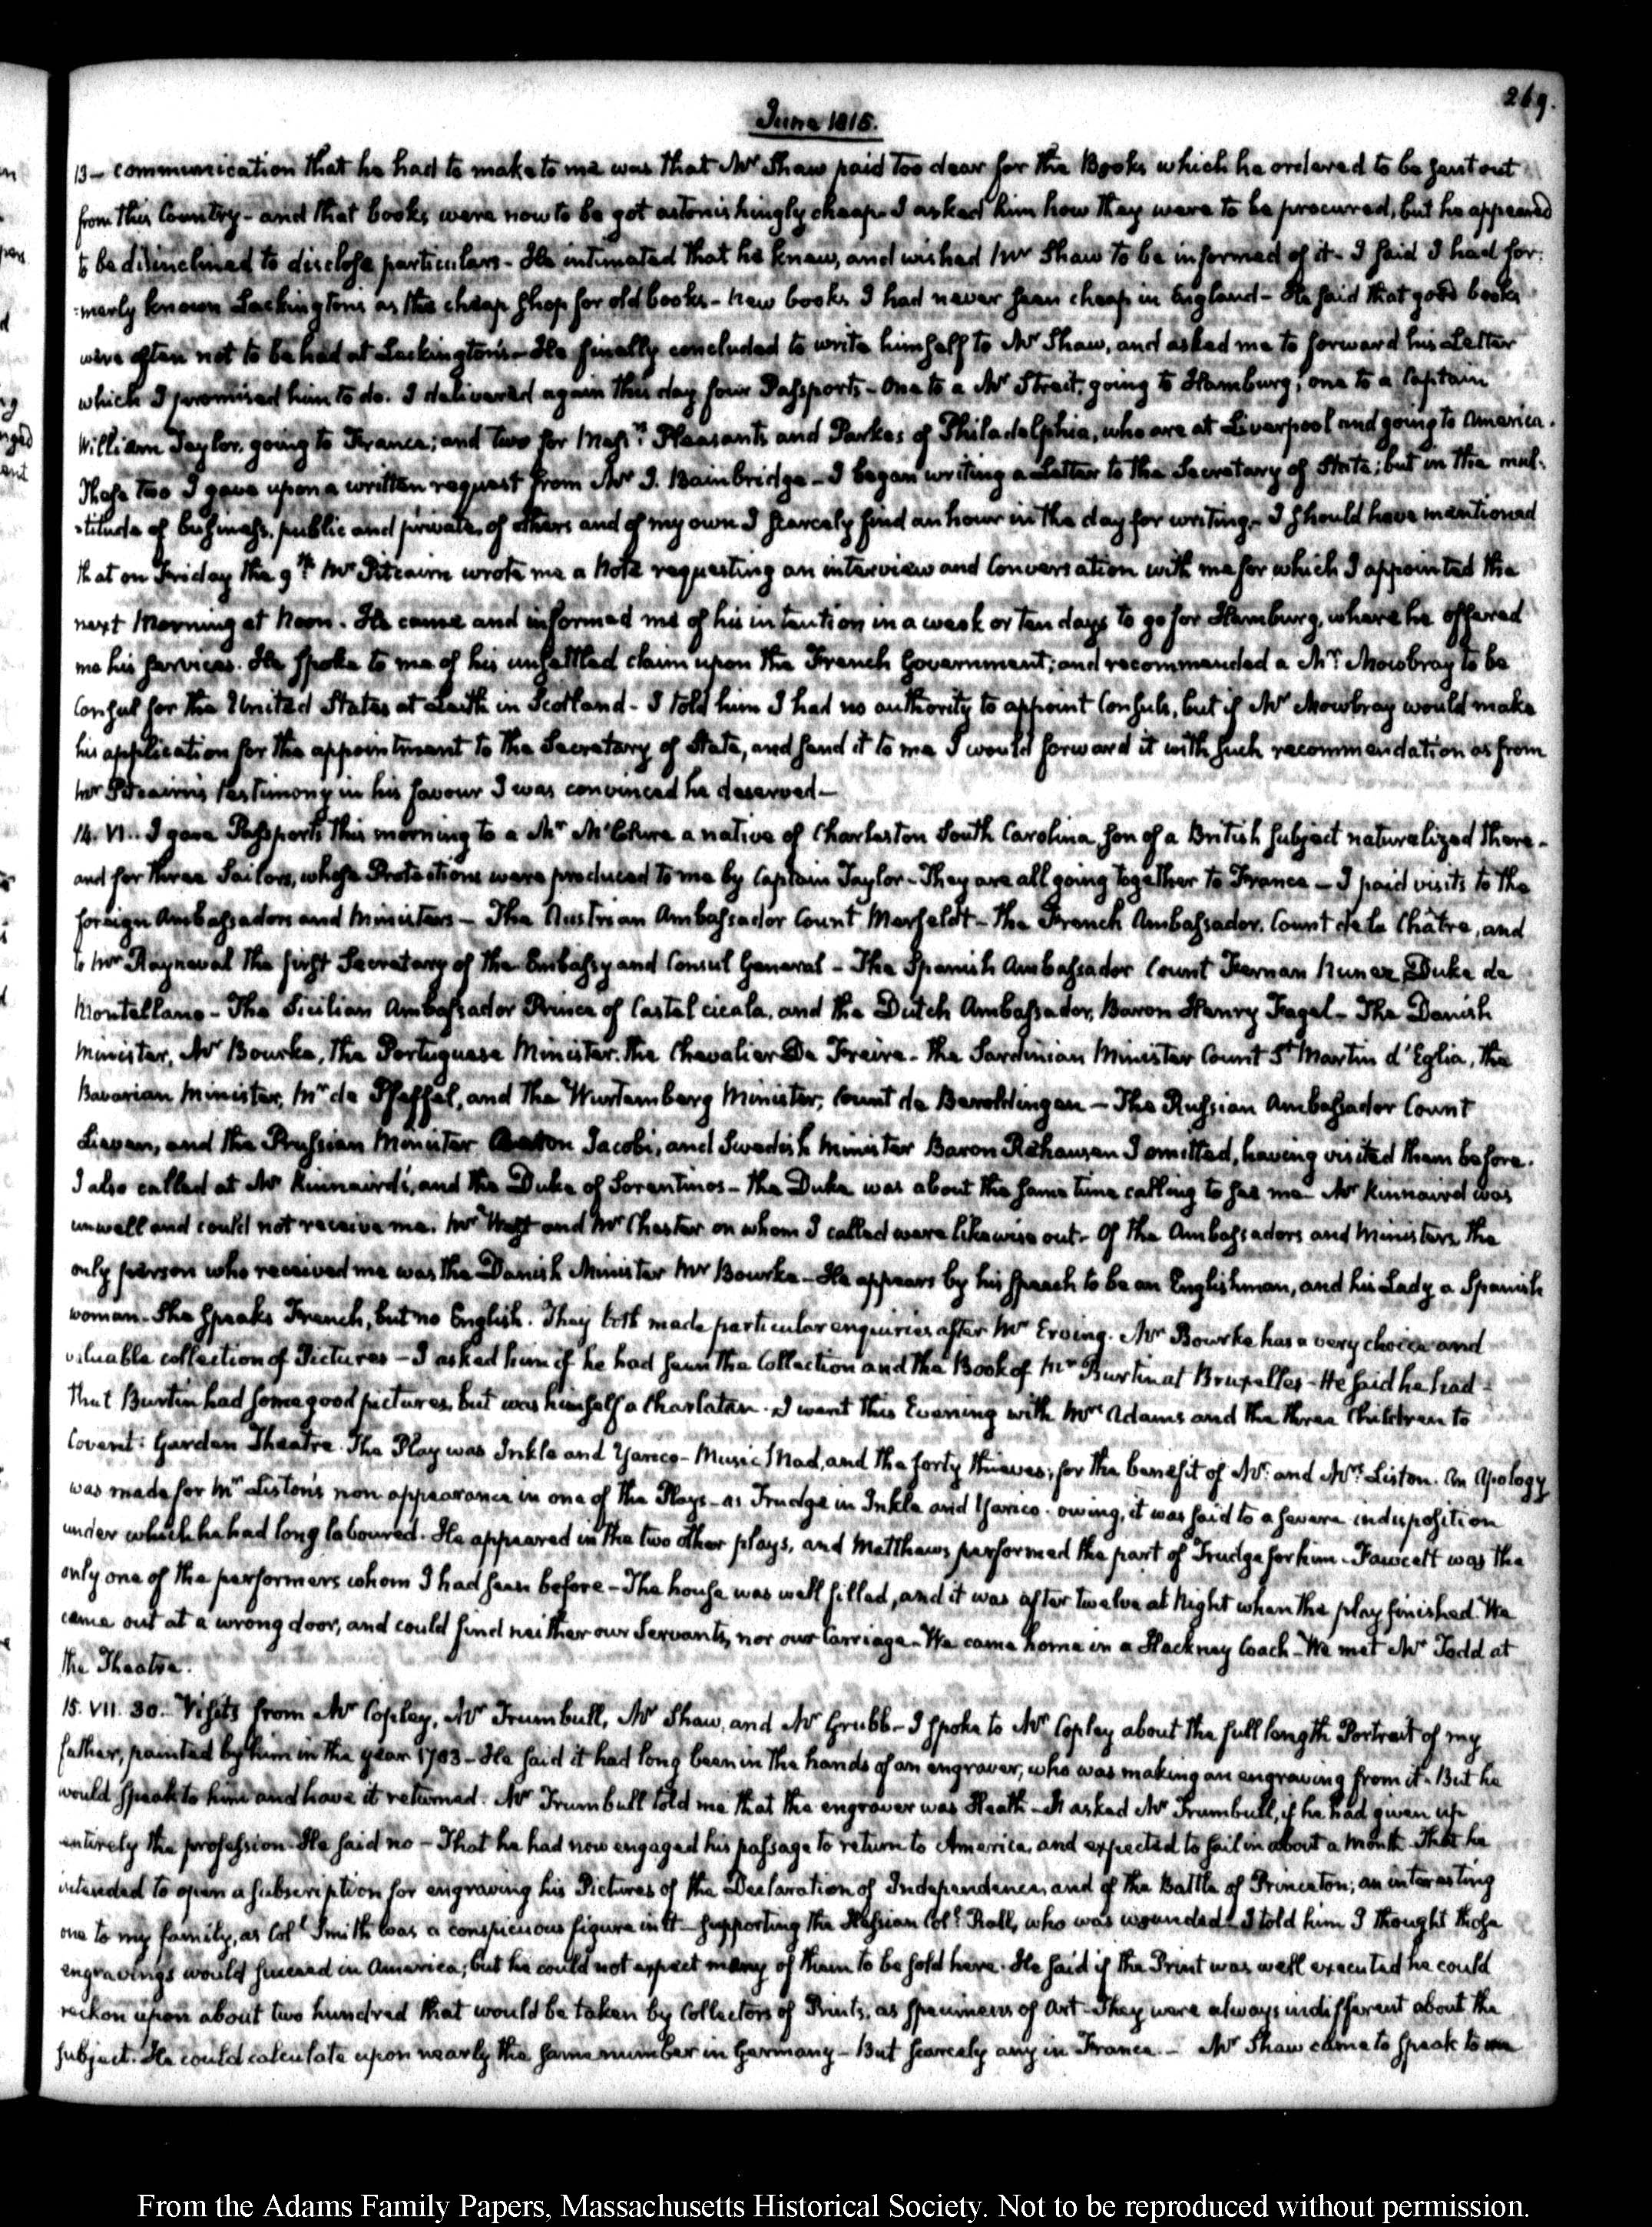 269.
June 1815.
13 - communication that he had to make to me was that Mr Shaw paid too dear for the Books which he ordered to be sent out
from this Country - and that books were now to be got astonishingly cheap - I asked him how they were to be procured, but he appeared
to be disinclined to disclose particulars - He intimated that he knew, and wished Mr Shaw to be informed of it - I said I had for:
:merly known Lackington's as the cheap shop for old books - New books I had never seen cheap in England - He said that good books
were often not to be had at Lackington's - He finally concluded to write himself to Mr Shaw, and asked me to forward his Letter
which I promised him to do. I delivered again this day four Passports - One to a Mr Strait, going to Hamburg; one to a Captain
William Taylor, going to France; and two for Messrs Pleasants and Parkes of Philadelphia, who are at Liverpool and going to America.
These two I gave upon a written request from Mr J. Bainbridge - I began writing a Letter to the Secretary of State; but in the mul:
:titude of business, public and private, of others and of my own I scarcely find an hour in the day for writing. - I should have mentioned
that on Friday the 9th Mr Pitcairn wrote me a Note requesting an interview and Conversation with me for which I appointed the
next Morning at Noon. He came and informed me of his intention in a week or ten days to go for Hamburg, where he offered
me his services. He spoke to me of his unsettled claim upon the French Government; and recommended a Mr Mowbray to be
Consul for the United States at Leith in Scotland - I told him I had no authority to appoint Consuls, but if Mr Mowbray would make
his application for the appointment to the Secretary of State, and send it to me I would forward it with such recommendation as from
Mr Pitcairn's testimony in his favour I was convinced he deserved -
14. VI. . I gave Passports this morning to a Mr McClure a native of Charleston South Carolina, son of a British subject naturalized there -
and for three Sailors, whose Protections were produced to me by Captain Taylor - They are all going together to France - I paid visits to the
foreign Ambassadors and Ministers - The Austrian Ambassador Count Merfeldt - the French Ambassador, Count de la Châtre, and
to Mr Rayneval the first Secretary of the Embassy and Consul General - The Spanish Ambassador Count Fernan Nunez Duke de
Montellano - The Sicilian Ambassador Prince of Castel cicala, and the Dutch Ambassador, Baron Henry Fagel - The Danish
Minister, Mr Bourke, the Portuguese Minister, the Chevalier De Freire - the Sardinian Minister Count St Martin d'Eglia, the
Bavarian Minister, Mr de Pfeffel, and the Wurtemberg Minister, Count de Beroldingen - The Russian Ambassador Count
Lieven, and the Prussian Minister Baron Jacobi, and Swedish Minister Baron Rehausen I omitted, having visited them before.
I also called at Mr Kinnaird's, and the Duke of Sorentinos - the Duke was about the same time calling to see me - Mr Kinnaird was
unwell and could not receive me. Mr West and Mr Chester on whom I called were likewise out - Of the Ambassadors and Ministers, the
only person who received me was the Danish Minister Mr Bourke - He appears by his speech to be an Englishman, and his Lady a Spanish
woman - She speaks French, but no English. They both made particular enquiries after Mr Erving. Mr Bourke has a very choice and
valuable collection of Pictures - I asked him if he had seen the Collection and the Book of Mr Burtin at Bruxelles - He said he had -
that Burtin had some good pictures, but was himself a Charlatan. I went this Evening with Mrs Adams and the three Children to
Covent: Garden Theatre. The Play was Inkle and Yarico - Music Mad, and the forty thieves; for the benefit of Mr and Mrs Liston. An Apology
was made for Mr Liston's non appearance in one of the Plays - as Trudge in Inkle and Yarico. owing, it was said to a severe indisposition
under which he had long laboured. He appeared in the two other plays, and Matthews performed the part of Trudge for him. Fawcett was the
only one of the performers whom I had seen before - The house was well filled, and it was after twelve at Night when the play finished. We
came out at a wrong door, and could find neither our Servants, nor our Carriage - We came home in a Hackney Coach - We met Mr Todd at
the Theatre.
15. VII. 30. Visits from Mr Copley, Mr Trumbull, Mr Shaw, and Mr Grubb - I spoke to Mr Copley about the full length Portrait of my
father, painted by him in the year 1783 - He said it had long been in the hands of an engraver, who was making an engraving from it. But he
would speak to him and have it returned. Mr Trumbull told me that the engraver was Heath - I asked Mr Trumbull, if he had given up
entirely the profession. He said no - That he had now engaged his passage to return to America, and expected to sail in about a month. That he
intended to open a subscription for engraving his Pictures of the Declaration of Independence, and of the Battle of Princeton; an interesting
one to my family, as Coll Smith was a conspicuous figure in it - supporting the Hessian Coll Rall, who was wounded. I told him I thought those
engravings would succeed in America; but he could not expect many of them to be sold here. He said if the Print was well executed he could
reckon upon about two hundred that would be taken by Collectors of Prints, as specimens of Art - They were always indifferent about the
subject. He could calculate upon nearly the same number in Germany - But scarcely any in France. - Mr Shaw came to speak to me
From the Adams Family Papers, Massachusetts Historical Society. Not to be reproduced without permission.